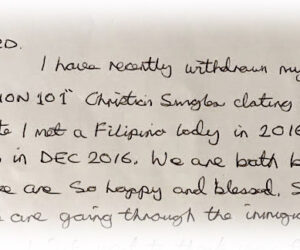 I have recently withdrawn my
ION 101" Christian Singles dating
I met a Filipino lady in 2016
in DEC 2016. We are both b
are so happy and blessed. S
are going through the immig